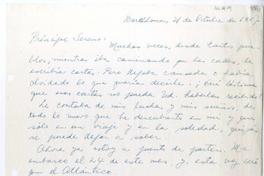 Barcelona, 21 de Octubre de 195
Príncipe Sereno:
Muchas veces, desde tantos pue-
blos, mientras iba caminando por las calles, le
escribía cartas. Pero después, cansada o había
olvidado lo que quería decirle. ¡Qué lástima
que esas cartas no pueda Ud. haberlas recibido!
Le contaba de mis luchas y mis sueños, de
todo lo que he descubierto en mí y que
sólo en un viaje y en la soledad, que
se puede dejar a solas.
Ahora ya estoy a punto de partir. Me
embarco el 24 de este mes, y esta vez será
por el Atlántico.